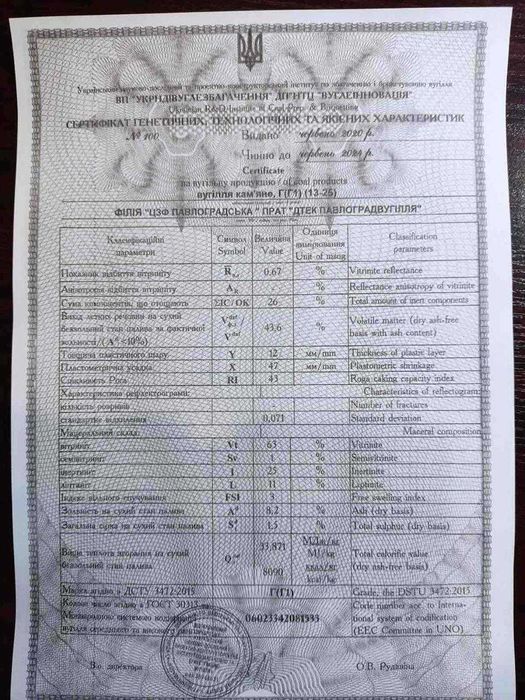 Український науково-дослідний та проектно-конструкторський інститут по збагаченню і брикетуванню вугілля
ВП "УКРНДІВУГЛЕЗБАГАЧЕННЯ" "ВУГЛЕІННОВАЦІЯ"
Ukrainian R&D Institute of Coal Prep. & Briquetting
СЕРТИФІКАТ ГЕНЕТИЧНИХ, ТЕХНОЛОГІЧНИХ ТА ЯКІСНИХ ХАРАКТЕРИСТИК
№ 100 Видано червень 2020 р.
Чинно до червень 2021 р.
Certificate
на вугільну продукцію / of coal products
вугілля кам'яне, Г(Г1) (13-25)
ФІЛІЯ "ЦЗФ ПАВЛОГРАДСЬКА" ПРАТ "ДТЕК ПАВЛОГРАДВУГІЛЛЯ"
Класифікаційні параметри Символ Symbol Величина Value Одиниця вимірювання Unit of meas Classification parameters
Показник відбиття вітриніту 0,67 % Vitrinite reflectance
Анізотропія відбиття вітриніту A_R - % Reflectance anisotropy of vitrinite
Сума компонентів, що отощають ΣІС/ОК 26 % Total amount of inert components
Вихід летких речовин на сухий беззольний стан палива за фактичної зольності/( A^d <10%) V^daf 43,6 % Volatile matter (dry ash-free basis with ash content)
Товщина пластичного шару Y 12 мм/mm Thickness of plastic layer
Пластометрична усадка X 47 мм/mm Plastometric shrinkage
Спікливість Рога RI 43 Roga caking capacity index
Характеристика рефлектограми: Characteristics of reflectogram:
кількість розривів - Number of fractures
стандартне відхилення 0,071 Standard deviation
Мацеральний склад: Maceral composition:
вітриніт Vt 63 % Vitrinite
семівітриніт Sv 1 % Semivitrinite
інертиніт I 25 % Inertinite
ліптиніт L 11 % Liptinite
Індекс вільного спучування FSI 3 Free swelling index
Зольність на сухий стан палива A^d 8,2 % Ash (dry basis)
Загальна сірка на сухий стан палива S^d 1,5 % Total sulphur (dry basis)
Вища теплота згорання на сухий беззольний стан палива 33,871 МДж/кг MJ/kg 8090 ккал/кг kcal/kg Total calorific value (dry ash-free basis)
Марка згідно з ДСТУ 3472-2015 Г(Г1) Grade, the DSTU 3472:2015
Кодове число згідно з ГОСТ 30313 та Міжнародною системою кодифікації вугілля середнього та високого рангів 06023342081533 Code number acc to International system of codification (EEC Committee in UNO)
В.о. директора О.В. Рудавіна